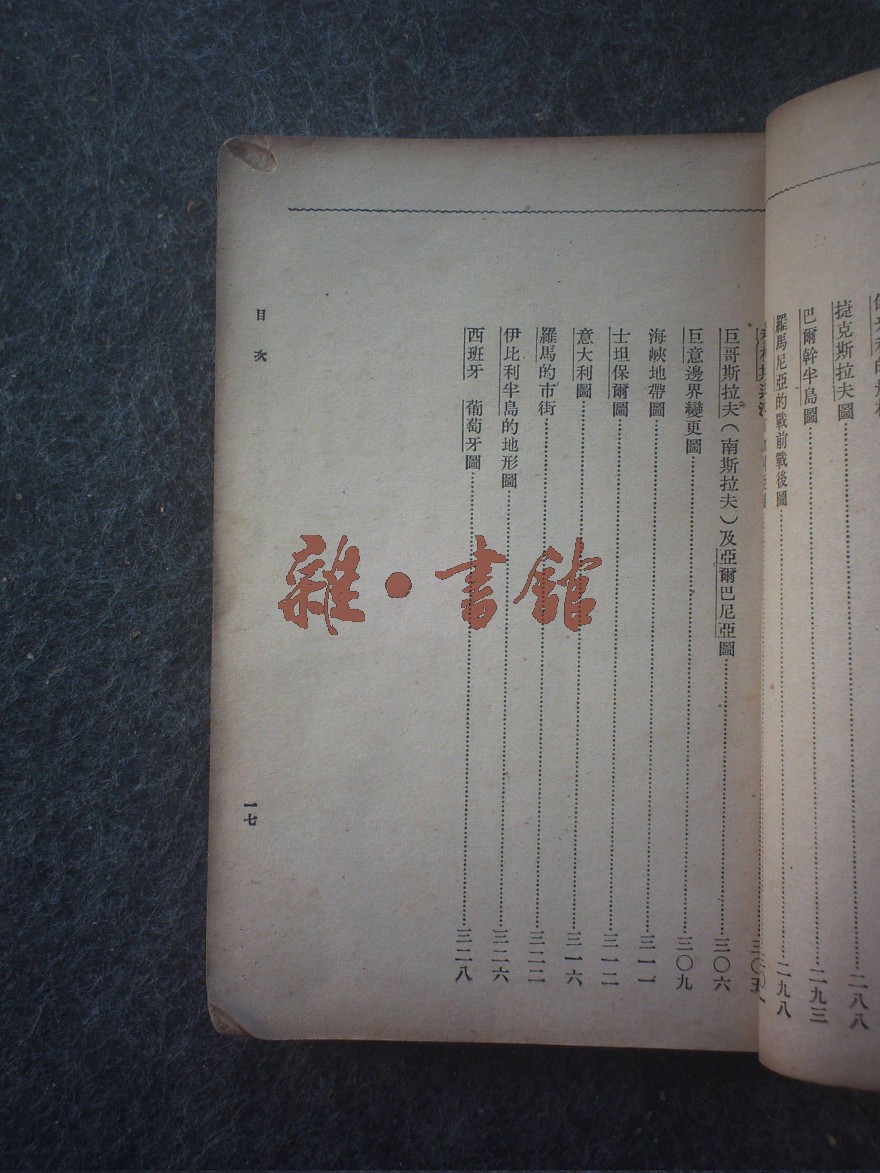 捷克斯拉夫圖……二八八
巴爾幹半島圖……二九三
羅馬尼亞的戰前戰後圖……二九八
三〇五
巨哥斯拉夫(南斯拉夫)及亞爾巴尼亞圖……三〇六
巨意邊界變更圖……三〇九
海峽地帶圖……三一一
士坦保爾圖……三一二
意大利圖……三一六
羅馬的市街……三二二
伊比利半島的地形圖……三二六
西班牙 葡萄牙圖……三二八
目次
一七
雜·書館